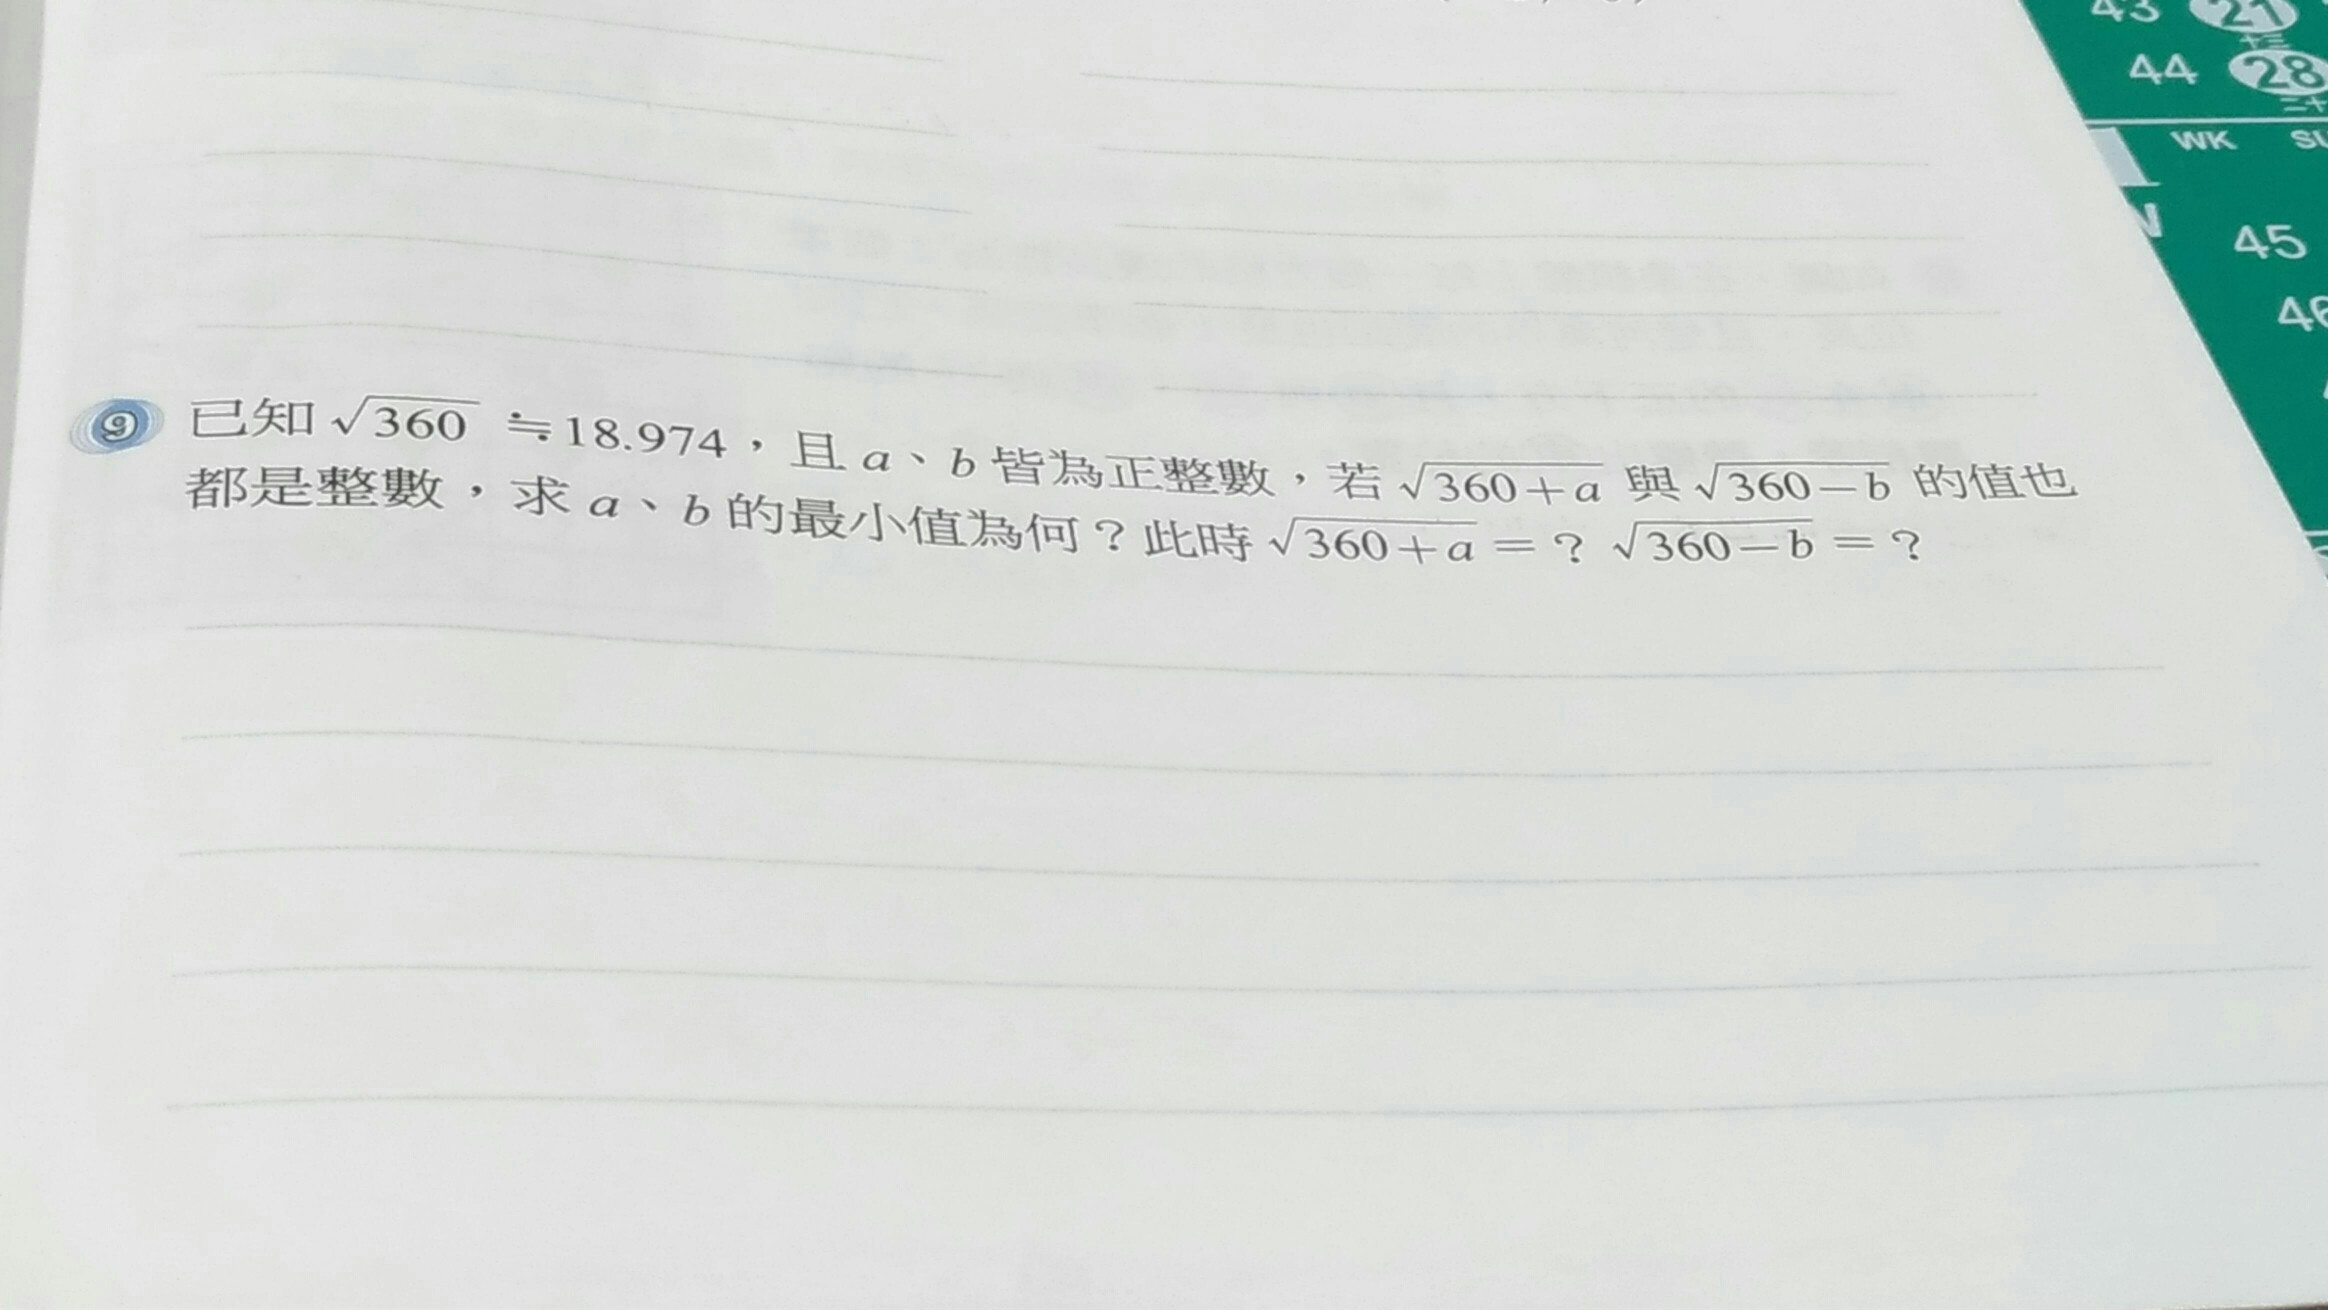 43 21
十三
44 28
二十
WK
45
⑨ 已知 √360 ≒18.974，且 a、b 皆為正整數，若 √360+a 與 √360-b 的值也
都是整數，求 a、b 的最小值為何？此時 √360+a =？ √360-b =？